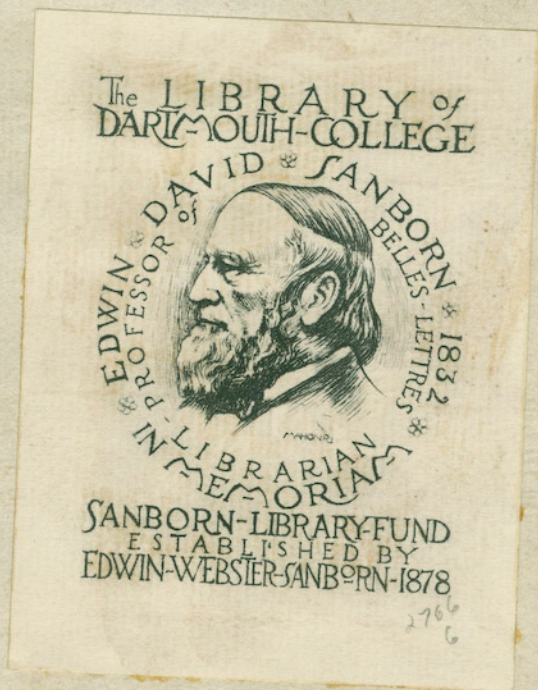 The LIBRARY of
DARTMOUTH-COLLEGE
EDWIN DAVID SANBORN 1832
PROFESSOR of BELLES-LETTRES
LIBRARIAN
IN MEMORIAM
SANBORN-LIBRARY-FUND
ESTABLISHED BY
EDWIN-WEBSTER-SANBORN-1878
2766
6